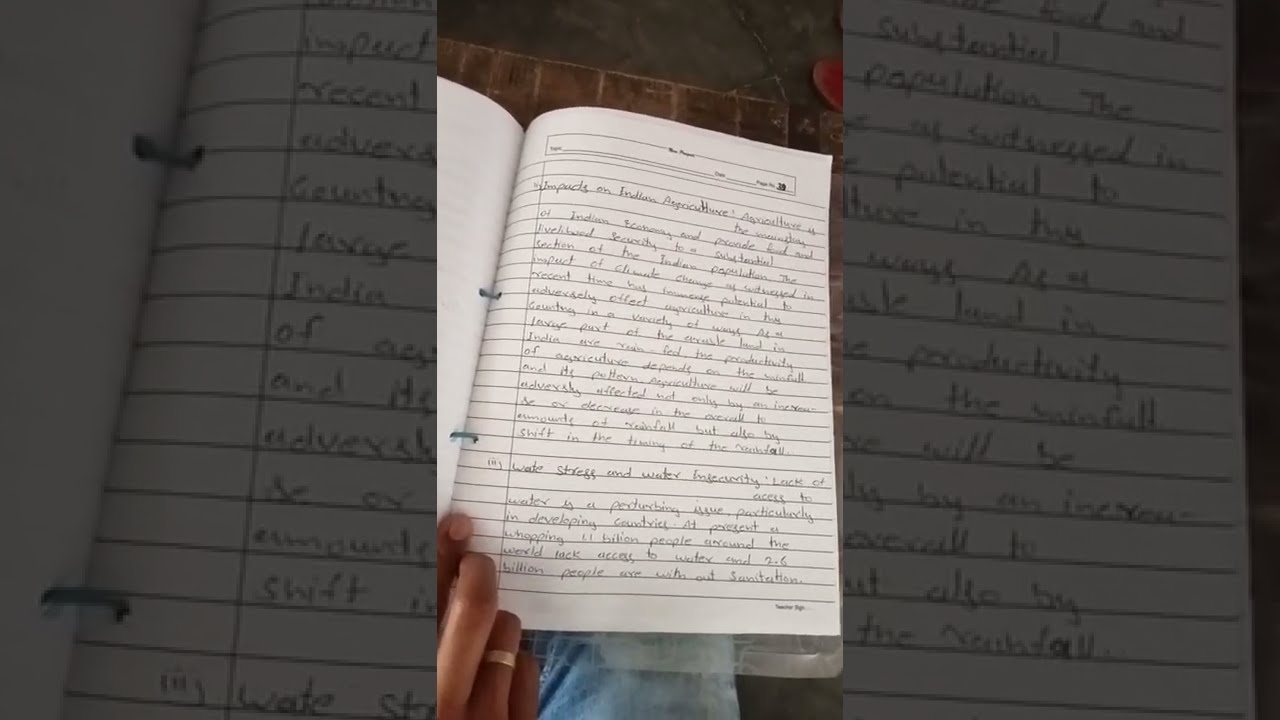 Topic
Date
Page No. 39
ii) Impacts on Indian Agriculture : Agriculture is
the mainstay
of Indian Economy and provide food and
livelihood security to a substantial
section of the Indian population. The
impact of climate change as witnessed in
recent time has immense potential to
adversely affect agriculture in this
country in a variety of ways. As a
large part of the arable land in
India are rain-fed the productivity
of agricuture depends on the rainfall
and its pattern Agriculture will be
adversly affected not only by an increa-
se or decrease in the overall to
amounts of rainfall but also by
shift in the timing of the rainfall.
iii) Wate stress and water Insecurity : Lack of
acess to
water is a perturbing issue, particularly
in developing countries. At present a
whopping 1.1 bilion people around the
world lack access to water and 2.6
billion people are with out sanitation.
Teacher Sign...